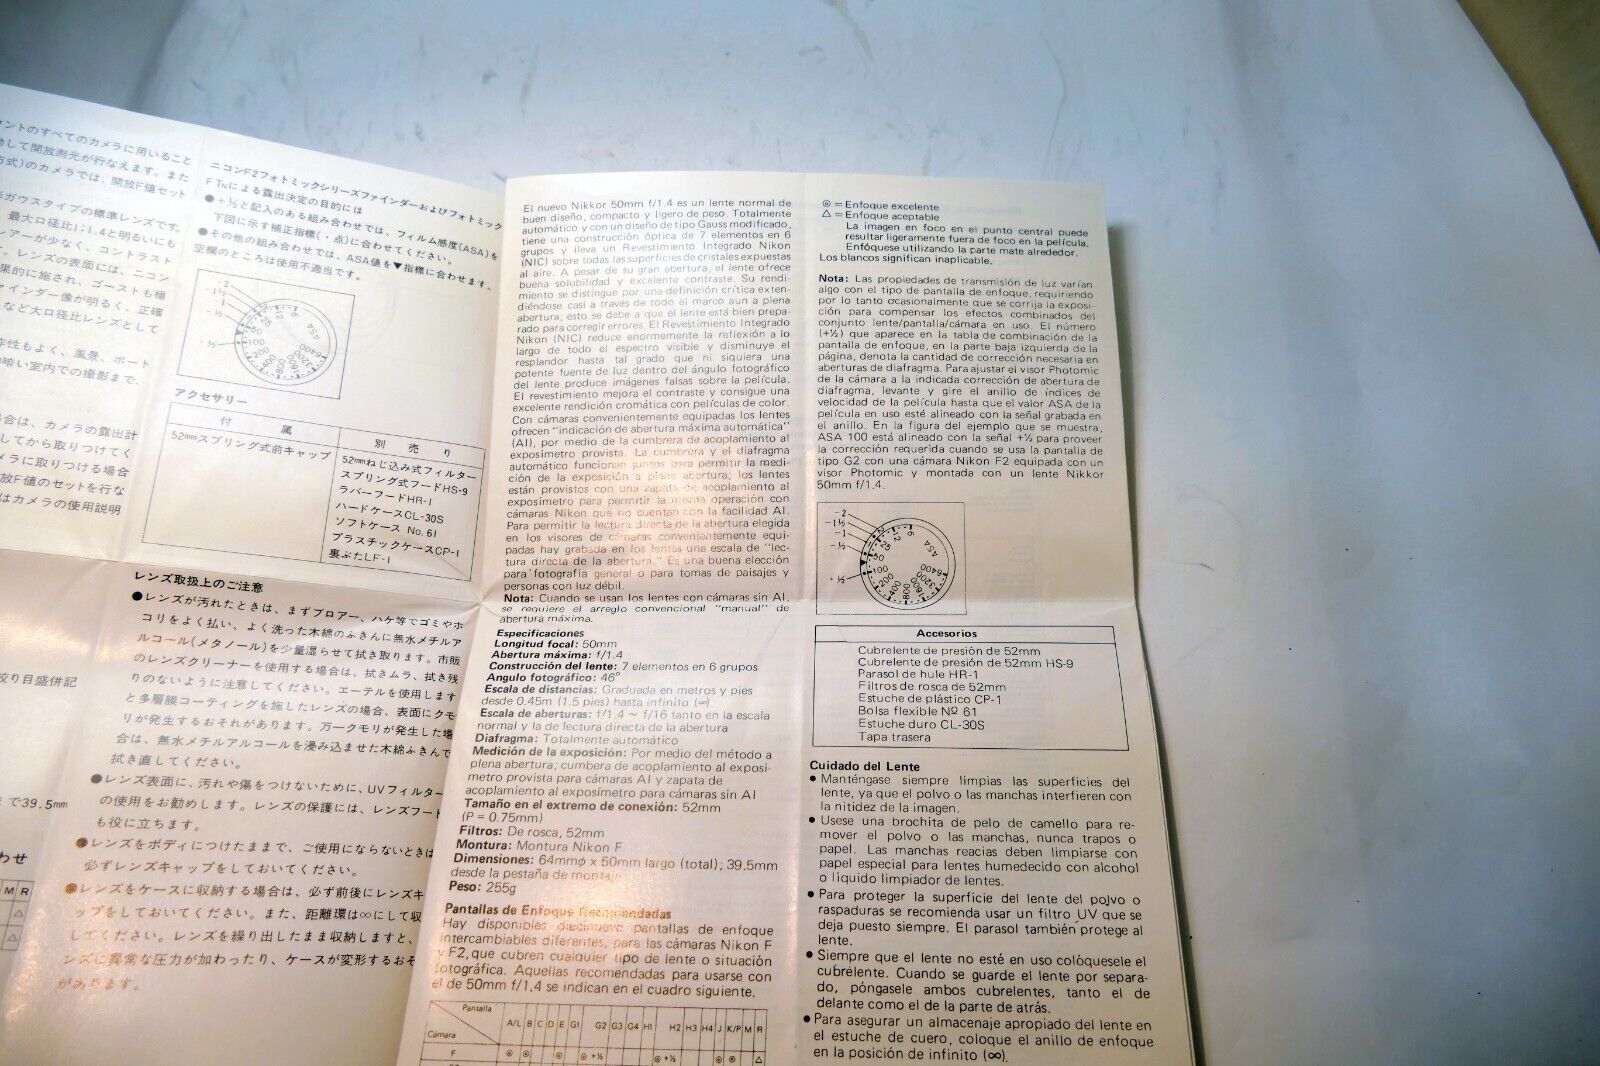 ントのすべてのカメラに用いること
して開放測光が行なえます。また
方式)のカメラでは、開放F値セット
ガウスタイプの標準レンズです。
最大口径比1:1.4と明るいにも
アーが少なく、コントラスト
。レンズの表面には、ニコン
果的に施され、ゴーストも極
ァインダー像が明るく、正確
など大口径比レンズとして
作性もよく、風景、ポート
暗い室内での撮影まで、
場合は、カメラの露出計
してから取りつけてく
メラに取りつける場合
放F値のセットを行な
はカメラの使用説明
絞り目盛併記
で39.5mm
わせ
M R
△
△
ニコンF2フォトミックシリーズファインダーおよびフォトミック
FTNによる露出決定の目的には
●+½と記入のある組み合わせでは、フィルム感度(ASA)を
下図に示す補正指標(・点)に合わせてください。
●その他の組み合わせでは、ASA値を▼指標に合わせます。
空欄のところは使用不適当です。
-2
-1½
-1
-½
+½
ASA 6 12 25 50 100 200 400 800 1600 3200 6400
アクセサリー
付 属 別 売 り
52mmスプリング式前キャップ
52mmねじ込み式フィルター
スプリング式フードHS-9
ラバーフードHR-1
ハードケースCL-30S
ソフトケース No.61
プラスチックケースCP-1
裏ぶたLF-1
レンズ取扱上のご注意
●レンズが汚れたときは、まずブロアー、ハケ等でゴミやホ
コリをよく払い、よく洗った木綿のふきんに無水メチルア
ルコール(メタノール)を少量湿らせて拭き取ります。市販
のレンズクリーナーを使用する場合は、拭きムラ、拭き残
りのないように注意してください。エーテルを使用します
と多層膜コーティングを施したレンズの場合、表面にクモ
リが発生するおそれがあります。万一クモリが発生した場
合は、無水メチルアルコールを浸み込ませた木綿ふきんで
拭き直してください。
●レンズ表面に、汚れや傷をつけないために、UVフィルター
の使用をお勧めします。レンズの保護には、レンズフード
も役に立ちます。
●レンズをボディにつけたままで、ご使用にならないときは
必ずレンズキャップをしておいてください。
●レンズをケースに収納する場合は、必ず前後にレンズキ
ップをしておいてください。また、距離環は∞にして収
してください。レンズを繰り出したまま収納しますと、
ンズに異常な圧力が加わったり、ケースが変形するおそ
があります。
El nuevo Nikkor 50mm f/1.4 es un lente normal de
buen diseño, compacto y ligero de peso. Totalmente
automático y con un diseño de tipo Gauss modificado,
tiene una construcción óptica de 7 elementos en 6
grupos y lleva un Revestimiento Integrado Nikon
(NIC) sobre todas las superficies de cristales expuestas
al aire. A pesar de su gran abertura, el lente ofrece
buena solubilidad y excelente contraste. Su rendi-
miento se distingue por una definición crítica exten-
diéndose casi a través de todo el marco aun a plena
abertura; esto se debe a que el lente está bien prepa-
rado para corregir errores. El Revestimiento Integrado
Nikon (NIC) reduce enormemente la reflexión a lo
largo de todo el espectro visible y disminuye el
resplandor hasta tal grado que ni siquiera una
potente fuente de luz dentro del ángulo fotográfico
del lente produce imágenes falsas sobre la película.
El revestimiento mejora el contraste y consigue una
excelente rendición cromática con películas de color.
Con cámaras convenientemente equipadas los lentes
ofrecen "indicación de abertura máxima automática"
(AI), por medio de la cumbrera de acoplamiento al
exposímetro provista. La cumbrera y el diafragma
automático funcionan juntos para permitir la medi-
ción de la exposición a plena abertura; los lentes
están provistos con una zapata de acoplamiento al
exposímetro para permitir la misma operación con
cámaras Nikon que no cuentan con la facilidad AI.
Para permitir la lectura directa de la abertura elegida
en los visores de cámaras convenientemente equi-
padas hay grabada en los lentes una escala de "lec-
tura directa de la abertura." Es una buena elección
para fotografía general o para tomas de paisajes y
personas con luz débil.
Nota: Cuando se usan los lentes con cámaras sin AI,
se requiere el arreglo convencional "manual" de
abertura máxima.
Especificaciones
Longitud focal: 50mm
Abertura máxima: f/1.4
Construcción del lente: 7 elementos en 6 grupos
Angulo fotográfico: 46°
Escala de distancias: Graduada en metros y pies
desde 0.45m (1.5 pies) hasta infinito (∞)
Escala de aberturas: f/1.4 ~ f/16 tanto en la escala
normal y la de lectura directa de la abertura
Diafragma: Totalmente automático
Medición de la exposición: Por medio del método a
plena abertura; cumbera de acoplamiento al exposí-
metro provista para cámaras AI y zapata de
acoplamiento al exposímetro para cámaras sin AI
Tamaño en el extremo de conexión: 52mm
(P = 0.75mm)
Filtros: De rosca, 52mm
Montura: Montura Nikon F
Dimensiones: 64mmφ x 50mm largo (total); 39.5mm
desde la pestaña de montaje
Peso: 255g
Pantallas de Enfoque Recomendadas
Hay disponibles diecinueve pantallas de enfoque
intercambiables diferentes, para las cámaras Nikon F
y F2, que cubren cualquier tipo de lente o situación
fotográfica. Aquellas recomendadas para usarse con
el de 50mm f/1.4 se indican en el cuadro siguiente.
Pantalla
Cámara
A/L B C D E G1 G2 G3 G4 H1 H2 H3 H4 J K/P M R
F ◎ ◎ ◎ ◎ +½ ◎ +½ ◎ ◎ △
◎ = Enfoque excelente
△ = Enfoque aceptable
La imagen en foco en el punto central puede
resultar ligeramente fuera de foco en la película.
Enfóquese utilizando la parte mate alrededor.
Los blancos significan inaplicable.
Nota: Las propiedades de transmisión de luz varían
algo con el tipo de pantalla de enfoque, requiriendo
por lo tanto ocasionalmente que se corrija la exposi-
ción para compensar los efectos combinados del
conjunto lente/pantalla/cámara en uso. El número
(+½) que aparece en la tabla de combinación de la
pantalla de enfoque, en la parte baja izquierda de la
página, denota la cantidad de corrección necesaria en
aberturas de diafragma. Para ajustar el visor Photomic
de la cámara a la indicada corrección de abertura de
diafragma, levante y gire el anillo de índices de
velocidad de la película hasta que el valor ASA de la
película en uso esté alineado con la señal grabada en
el anillo. En la figura del ejemplo que se muestra,
ASA 100 está alineado con la señal +½ para proveer
la corrección requerida cuando se usa la pantalla de
tipo G2 con una cámara Nikon F2 equipada con un
visor Photomic y montada con un lente Nikkor
50mm f/1.4.
-2
-1½
-1
-½
+½
ASA 6 12 25 50 100 200 400 800 1600 3200 6400
Accesorios
Cubrelente de presión de 52mm
Cubrelente de presión de 52mm HS-9
Parasol de hule HR-1
Filtros de rosca de 52mm
Estuche de plástico CP-1
Bolsa flexible Nº 61
Estuche duro CL-30S
Tapa trasera
Cuidado del Lente
● Manténgase siempre limpias las superficies del
lente, ya que el polvo o las manchas interfieren con
la nitidez de la imagen.
● Usese una brochita de pelo de camello para re-
mover el polvo o las manchas, nunca trapos o
papel. Las manchas reacias deben limpiarse con
papel especial para lentes humedecido con alcohol
o líquido limpiador de lentes.
● Para proteger la superficie del lente del polvo o
raspaduras se recomienda usar un filtro UV que se
deja puesto siempre. El parasol también protege al
lente.
● Siempre que el lente no esté en uso colóquesele el
cubrelente. Cuando se guarde el lente por separa-
do, póngasele ambos cubrelentes, tanto el de
delante como el de la parte de atrás.
● Para asegurar un almacenaje apropiado del lente en
el estuche de cuero, coloque el anillo de enfoque
en la posición de infinito (∞).